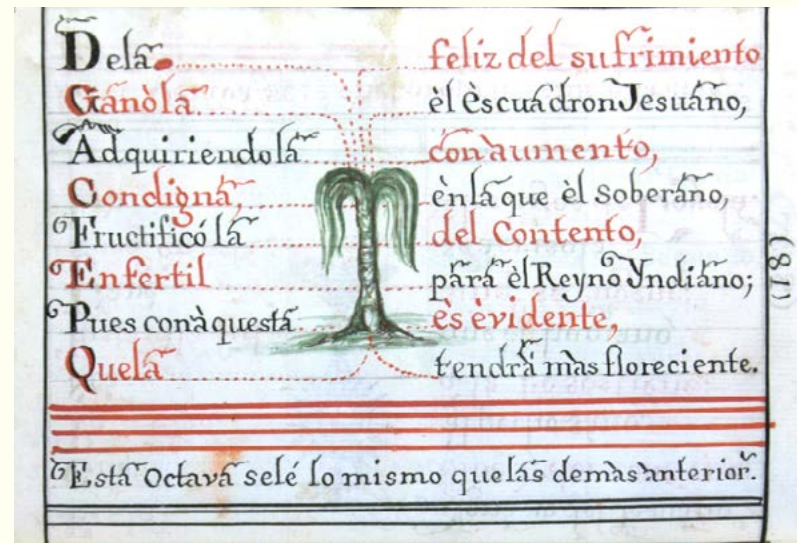 Dela feliz del sufrimiento
Ganòla èl Èscuadron Jesuano,
Adquiriendola con aumento,
Condigna, ènla que èl soberano,
Fructificó la del Contento,
Enfertil para èl Reyno Yndiano;
Pues conàquesta ès èvidente,
Quela tendrà mas floreciente.
(81)
Esta Octava selé lo mismo quelas demas anterior.s